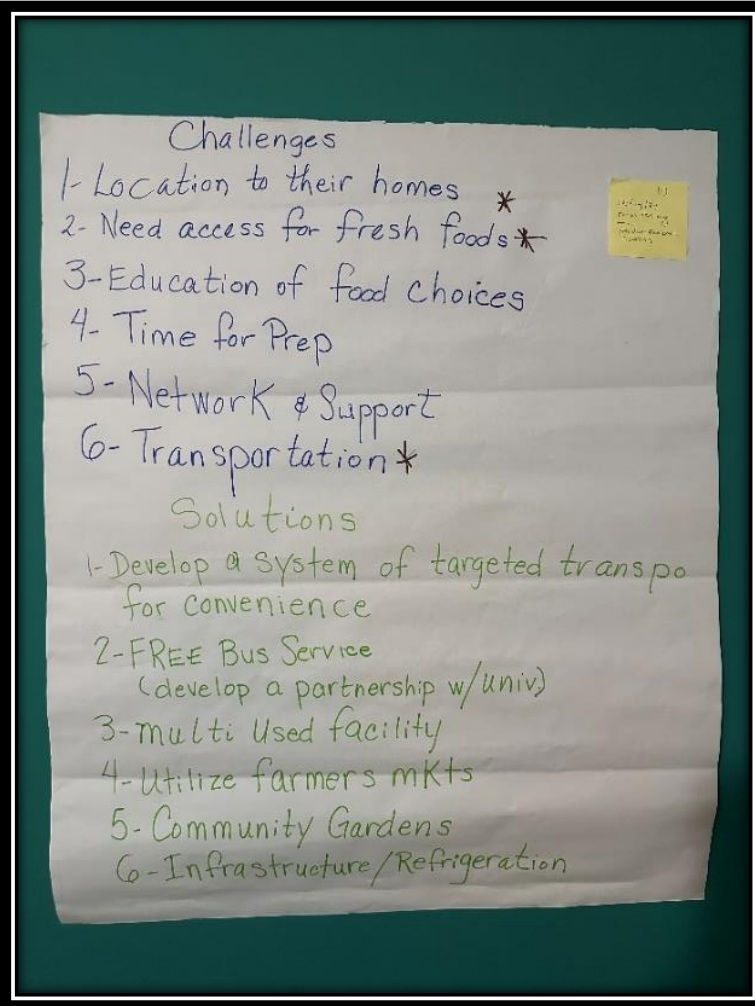 Challenges
1- Location to their homes *
2- Need access for fresh foods *
3- Education of food choices
4- Time for Prep
5- Network & Support
6- Transportation *
Solutions
1- Develop a system of targeted transpo
for convenience
2- FREE Bus Service
(develop a partnership w/univ)
3- multi Used facility
4- Utilize farmers mkts
5- Community Gardens
6- Infrastructure/Refrigeration